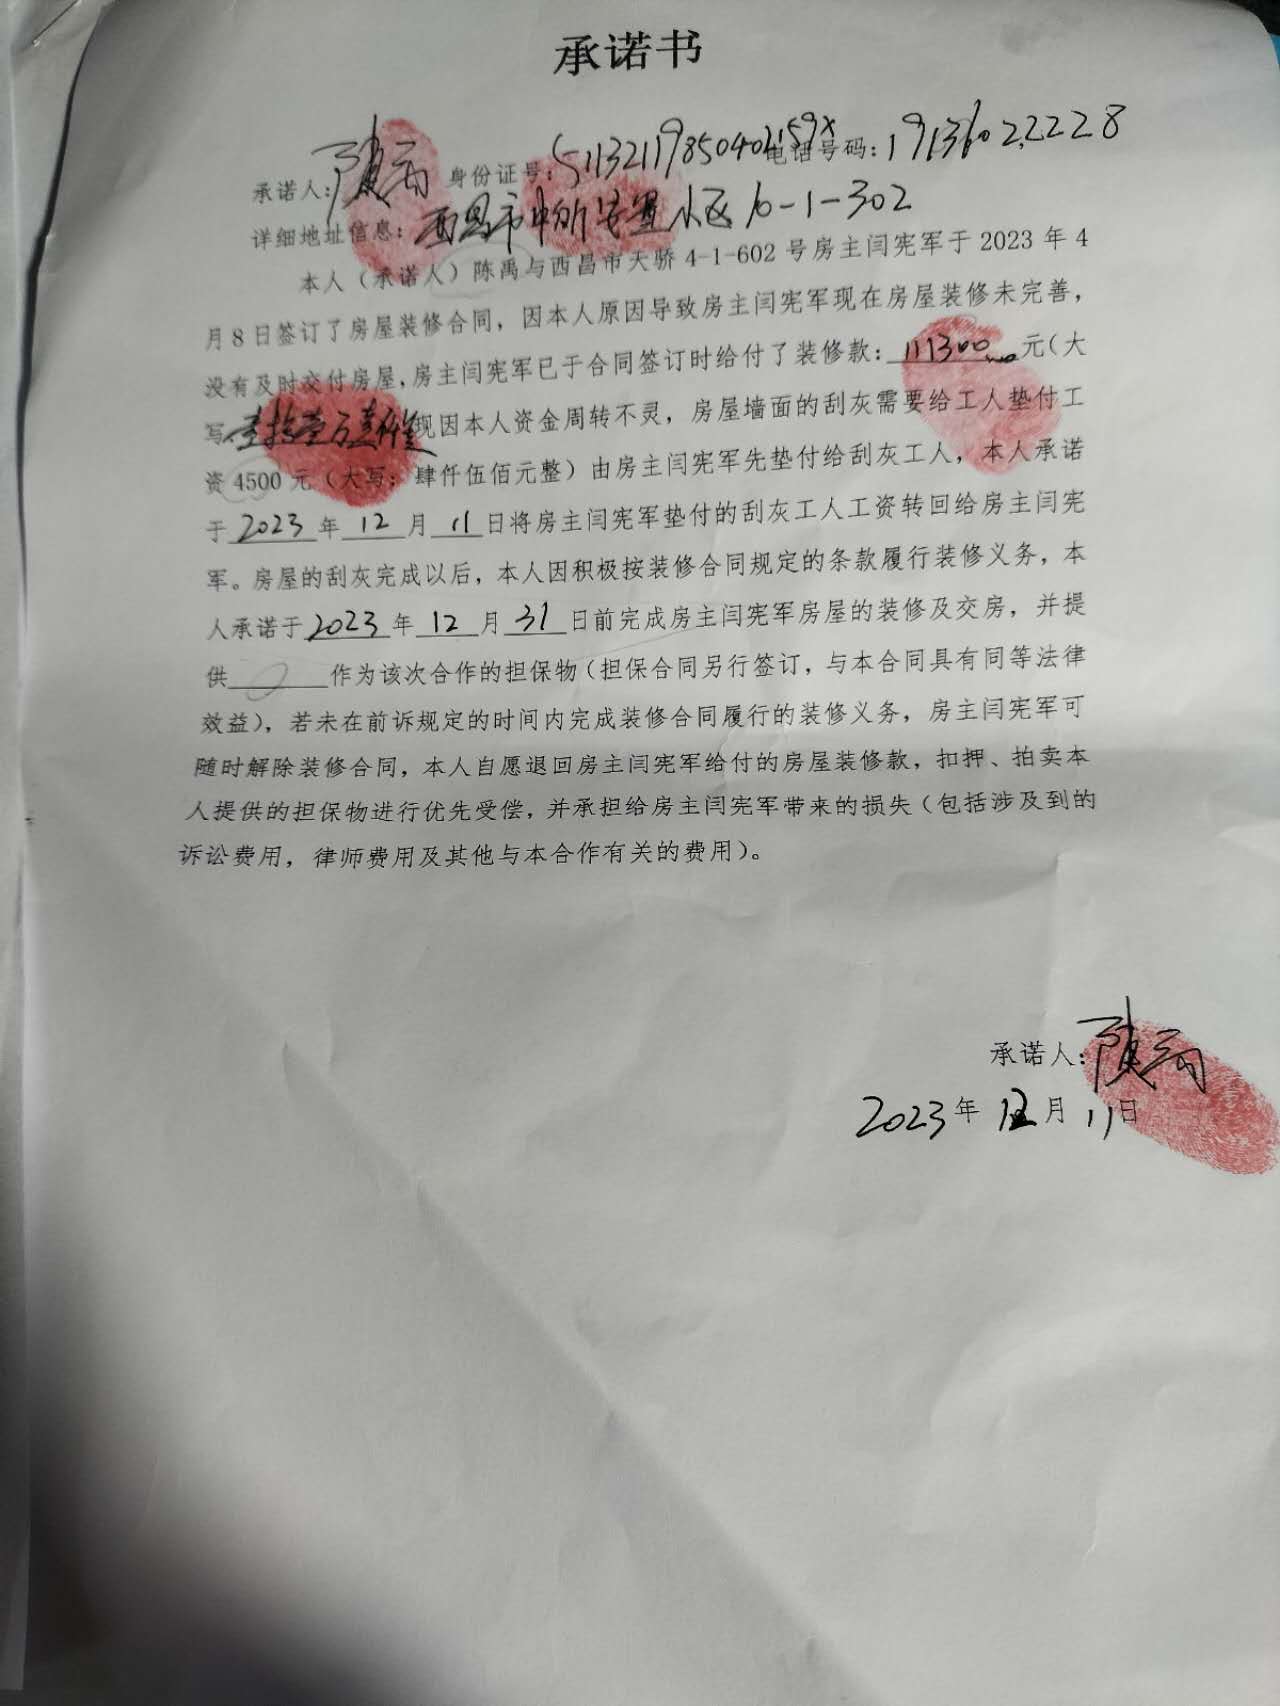 承诺书
承诺人:陈禹 身份证号:51132119850402159X 电话号码:19136022228
详细地址信息:西昌市中所安置小区10-1-302
本人(承诺人)陈禹与西昌市天骄 4-1-602 号房主闫宪军于 2023 年 4
月8日签订了房屋装修合同,因本人原因导致房主闫宪军现在房屋装修未完善,
没有及时交付房屋,房主闫宪军已于合同签订时给付了装修款:111300元(大
写 现因本人资金周转不灵,房屋墙面的刮灰需要给工人垫付工
资 4500 元(大写:肆仟伍佰元整)由房主闫宪军先垫付给刮灰工人,本人承诺
于2023年12月11日将房主闫宪军垫付的刮灰工人工资转回给房主闫宪
军。房屋的刮灰完成以后,本人因积极按装修合同规定的条款履行装修义务,本
人承诺于2023年12月31日前完成房主闫宪军房屋的装修及交房,并提
供 作为该次合作的担保物(担保合同另行签订,与本合同具有同等法律
效益),若未在前诉规定的时间内完成装修合同履行的装修义务,房主闫宪军可
随时解除装修合同,本人自愿退回房主闫宪军给付的房屋装修款,扣押、拍卖本
人提供的担保物进行优先受偿,并承担给房主闫宪军带来的损失(包括涉及到的
诉讼费用,律师费用及其他与本合作有关的费用)。
承诺人:陈禹
2023年12月11日